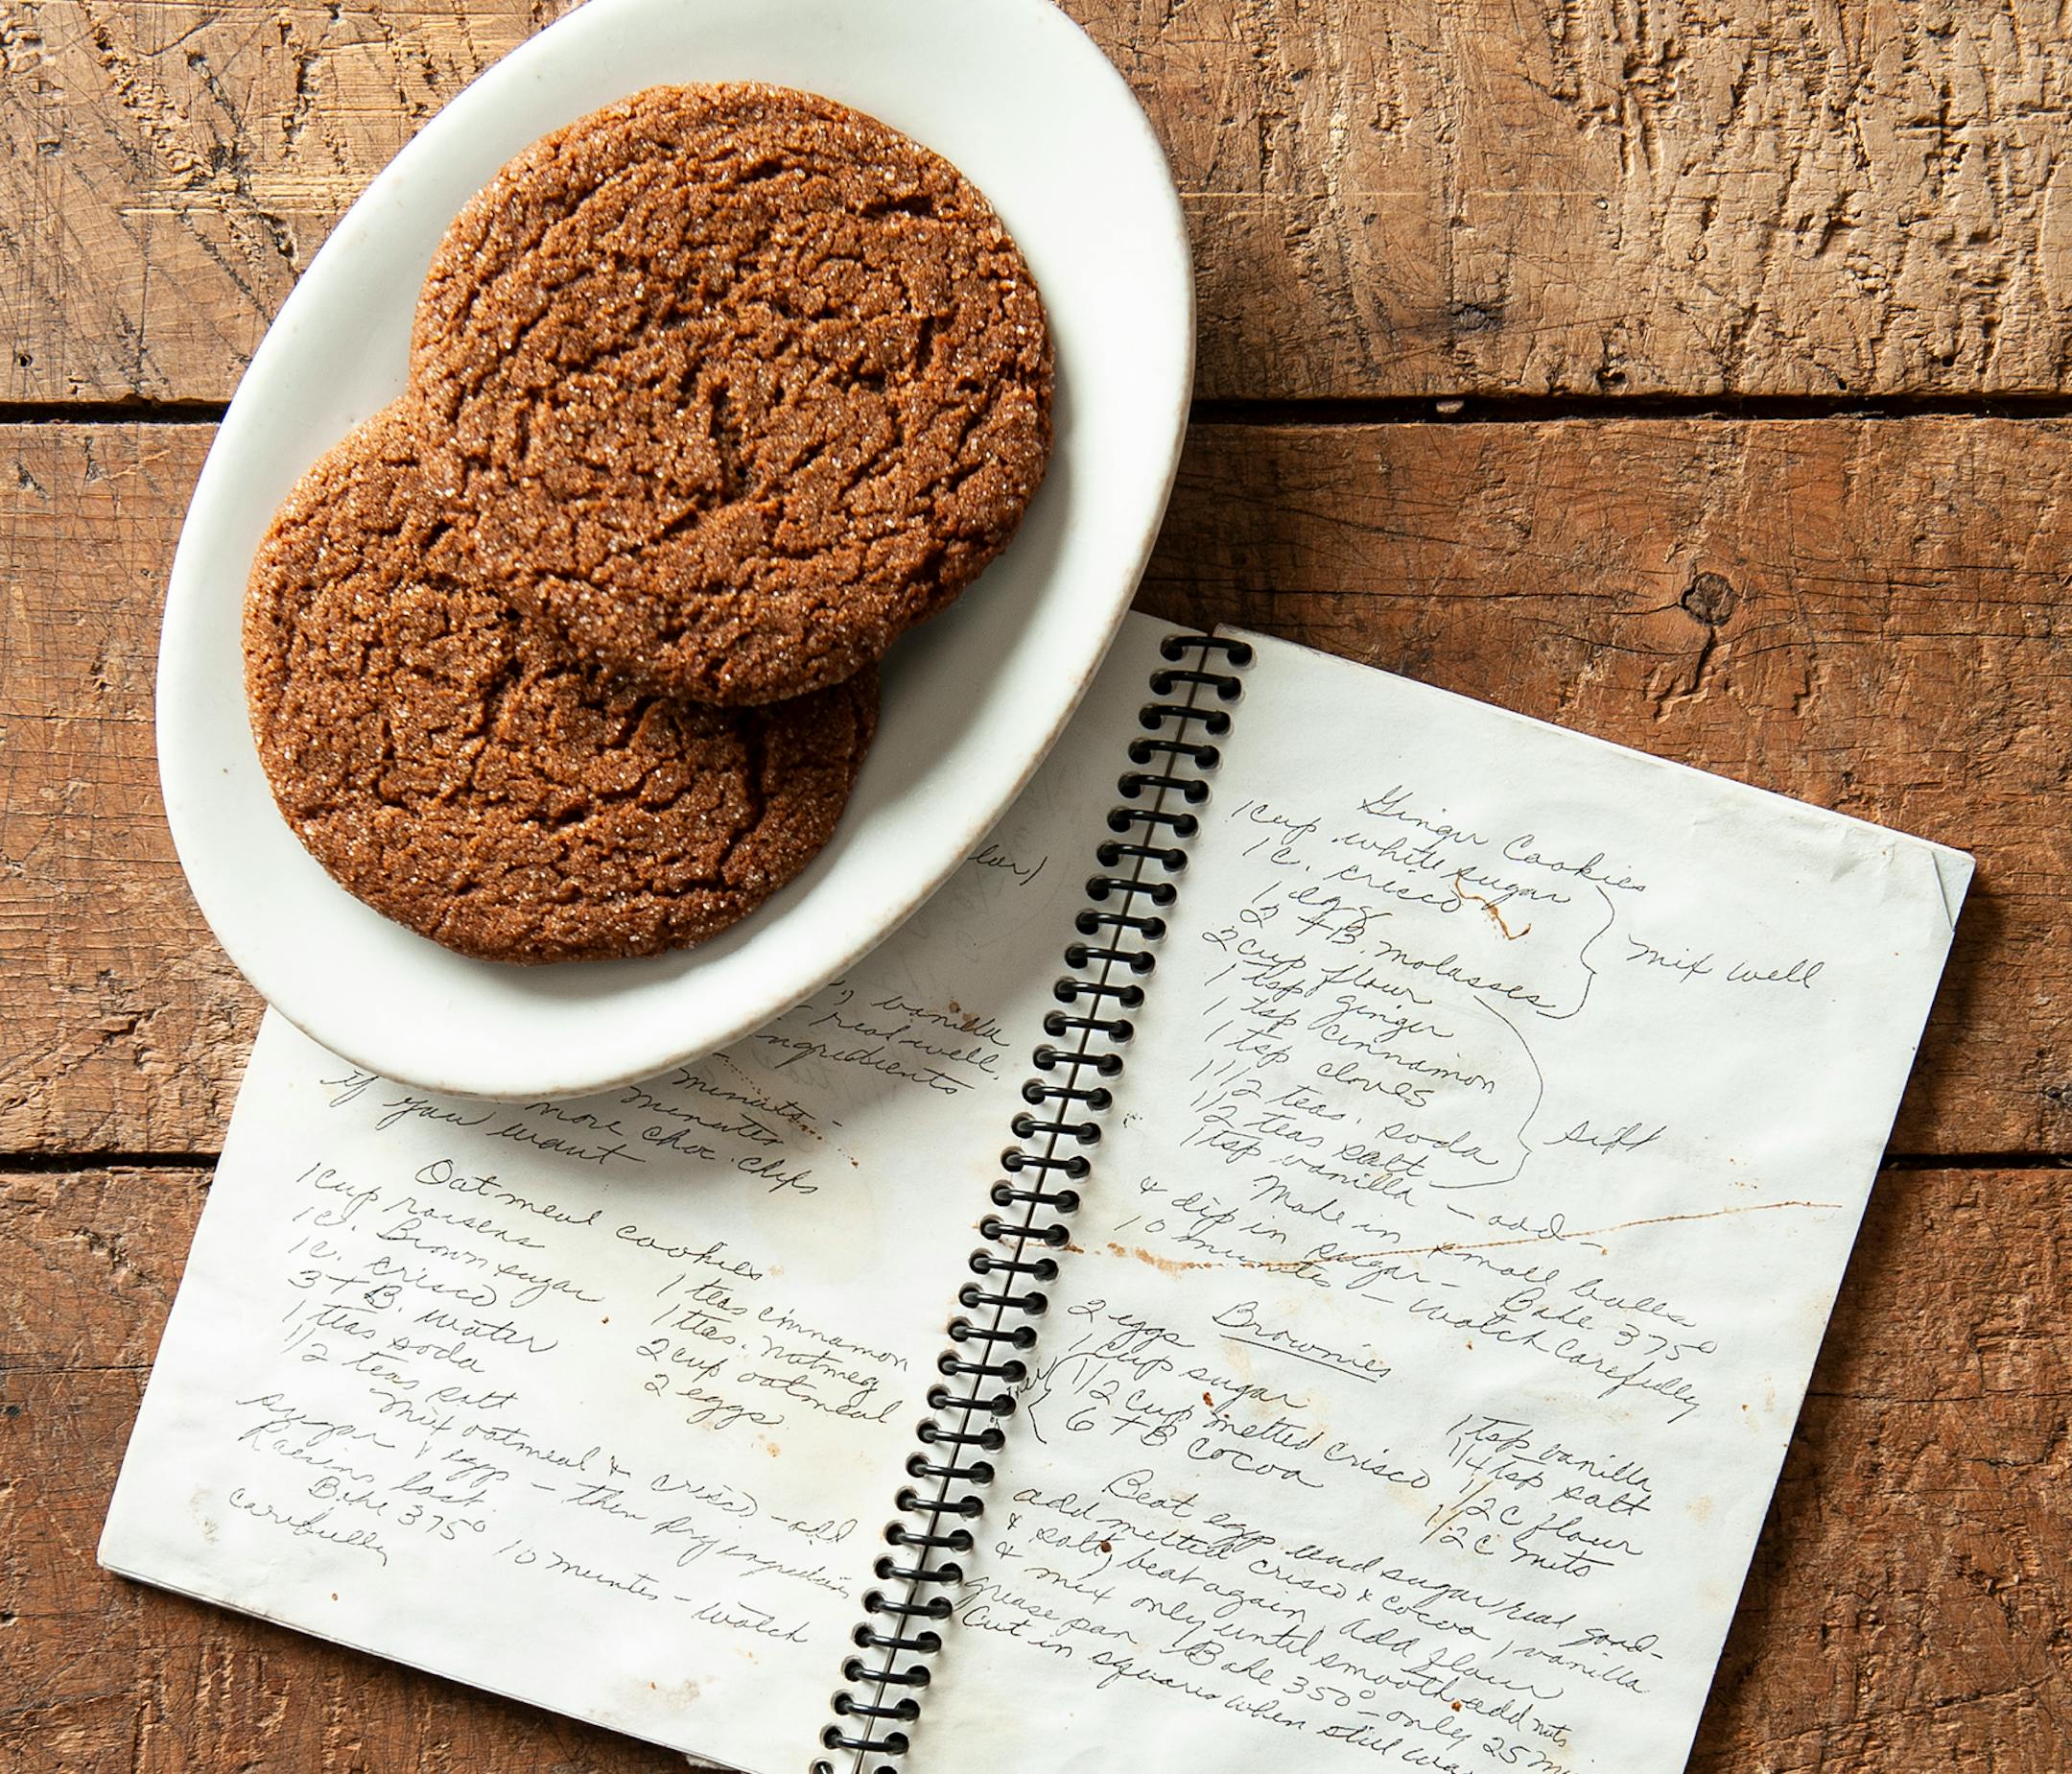 lar)
, vanilla
real well.
ingredients
minutes -
minutes
more choc. chips
if you want
Oatmeal cookies
1 cup raisens
1 c. Brown sugar
1 c. crisco
3 TB. water
1 teas soda
1/2 teas salt
1 teas cinnamon
1 teas. nutmeg
2 cup oatmeal
2 eggs
Mix oatmeal & crisco - add
sugar & eggs - then dry ingredients
Raisins last.
Bake 375° 10 minutes - watch
carefully
Ginger Cookies
1 cup white sugar
1 c. crisco
1 egg
2 TB. molasses
mix well
2 cup flour
1 tsp ginger
1 tsp cinnamon
1 tsp cloves
1 1/2 teas. soda
1/2 teas salt
sift
1 tsp vanilla - add -
Make in small balls
& dip in sugar - Bake 375°
10 minutes - watch carefully
Brownies
2 eggs
1 cup sugar
1/2 cup melted crisco
6 TB cocoa
1 tsp vanilla
1/4 tsp salt
1/2 c flour
1/2 c nuts
Beat eggs and sugar real good -
add melted crisco & cocoa, vanilla
& salt, beat again. Add flour
& mix only until smooth. add nuts
grease pan Bake 350° - only 25
Cut in squares when still